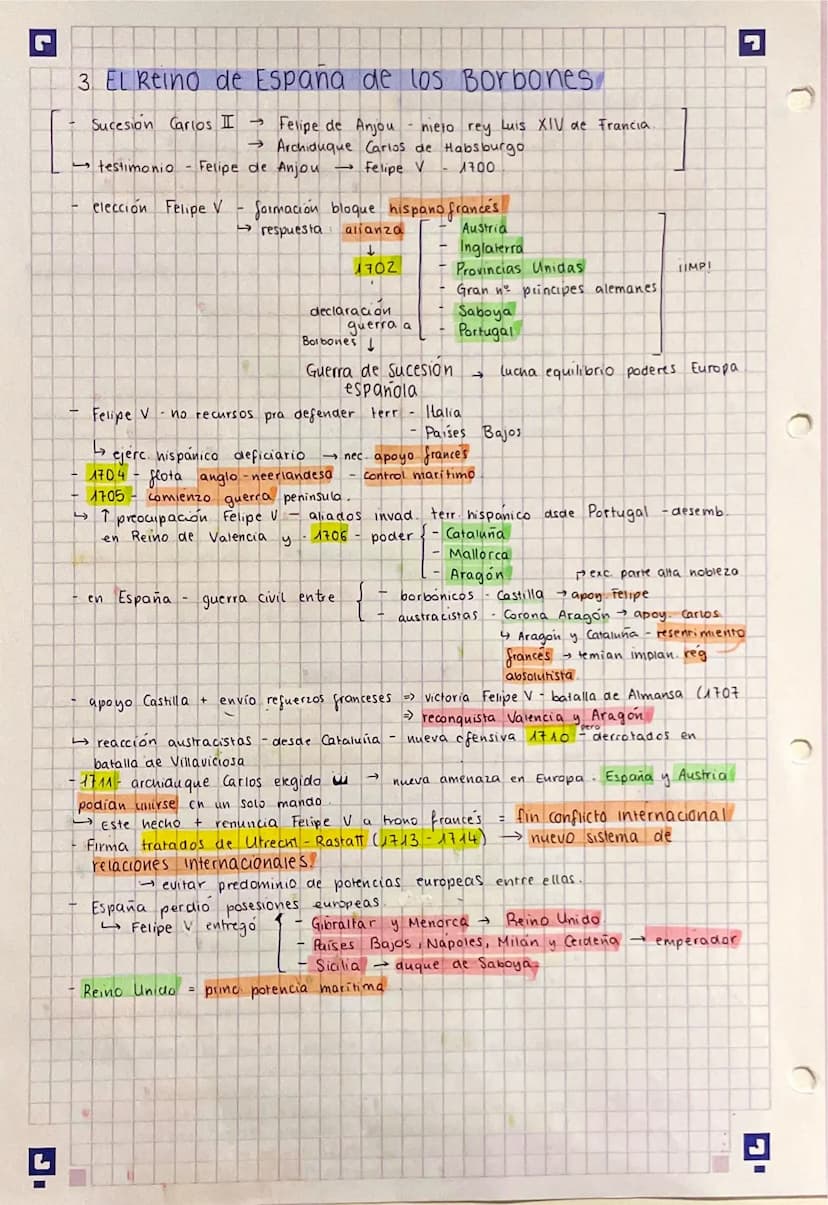 3 El Reino de España de los Borbones
- Sucesión Carlos II → Felipe de Anjou - nieto rey Luis XIV de Francia.
→ Archiduque Carlos de Habsburgo
↳ testimonio - Felipe de Anjou → Felipe V - 1700
- elección Felipe V - formación bloque hispano francés
↳ respuesta: alianza - Austria
↓ - Inglaterra
1702 - Provincias Unidas ¡IMP!
- Gran nº príncipes alemanes
declaración - Saboya
guerra a - Portugal
Borbones ↓
Guerra de sucesión → lucha equilibrio poderes Europa
española
- Felipe V - no recursos pra defender terr - Italia
- Países Bajos
↳ ejérc. hispánico deficiario → nec. apoyo francés
- 1704 - flota anglo-neerlandesa - control marítimo
- 1705 - comienzo guerra península.
↳ ↑ preocupación Felipe V - aliados invad. terr. hispánico dsde Portugal - desemb.
en Reino de Valencia y - 1706 - poder { - Cataluña
- Mallorca
- Aragón ↱ exc. parte alta nobleza
- en España - guerra civil entre { - borbónicos - Castilla → apoy. Felipe
- austracistas - Corona Aragón → apoy. Carlos
↳ Aragón y Cataluña - resentimiento
francés → temían implan. rég
absolutista
- apoyo Castilla + envío refuerzos franceses => victoria Felipe V - batalla de Almansa (1707
=> reconquista Valencia y Aragón
↳ reacción austracistas - desde Cataluña - nueva ofensiva 1710 - pero derrotados en
batalla de Villaviciosa
- 1711 - archiduque Carlos elegido → nueva amenaza en Europa. España y Austria
podían unirse en un solo mando.
↳ Este hecho + renuncia Felipe V a trono francés = fin conflicto internacional
- Firma tratados de Utrecht - Rastatt (1713 - 1714) → nuevo sistema de
relaciones internacionales.
↳ evitar predominio de potencias europeas entre ellas.
- España perdió posesiones europeas.
↳ Felipe V entregó { - Gibraltar y Menorca → Reino Unido
- Países Bajos, Nápoles, Milán y Cerdeña → emperador
- Sicilia → duque de Saboya,
- Reino Unido = princ. potencia marítima